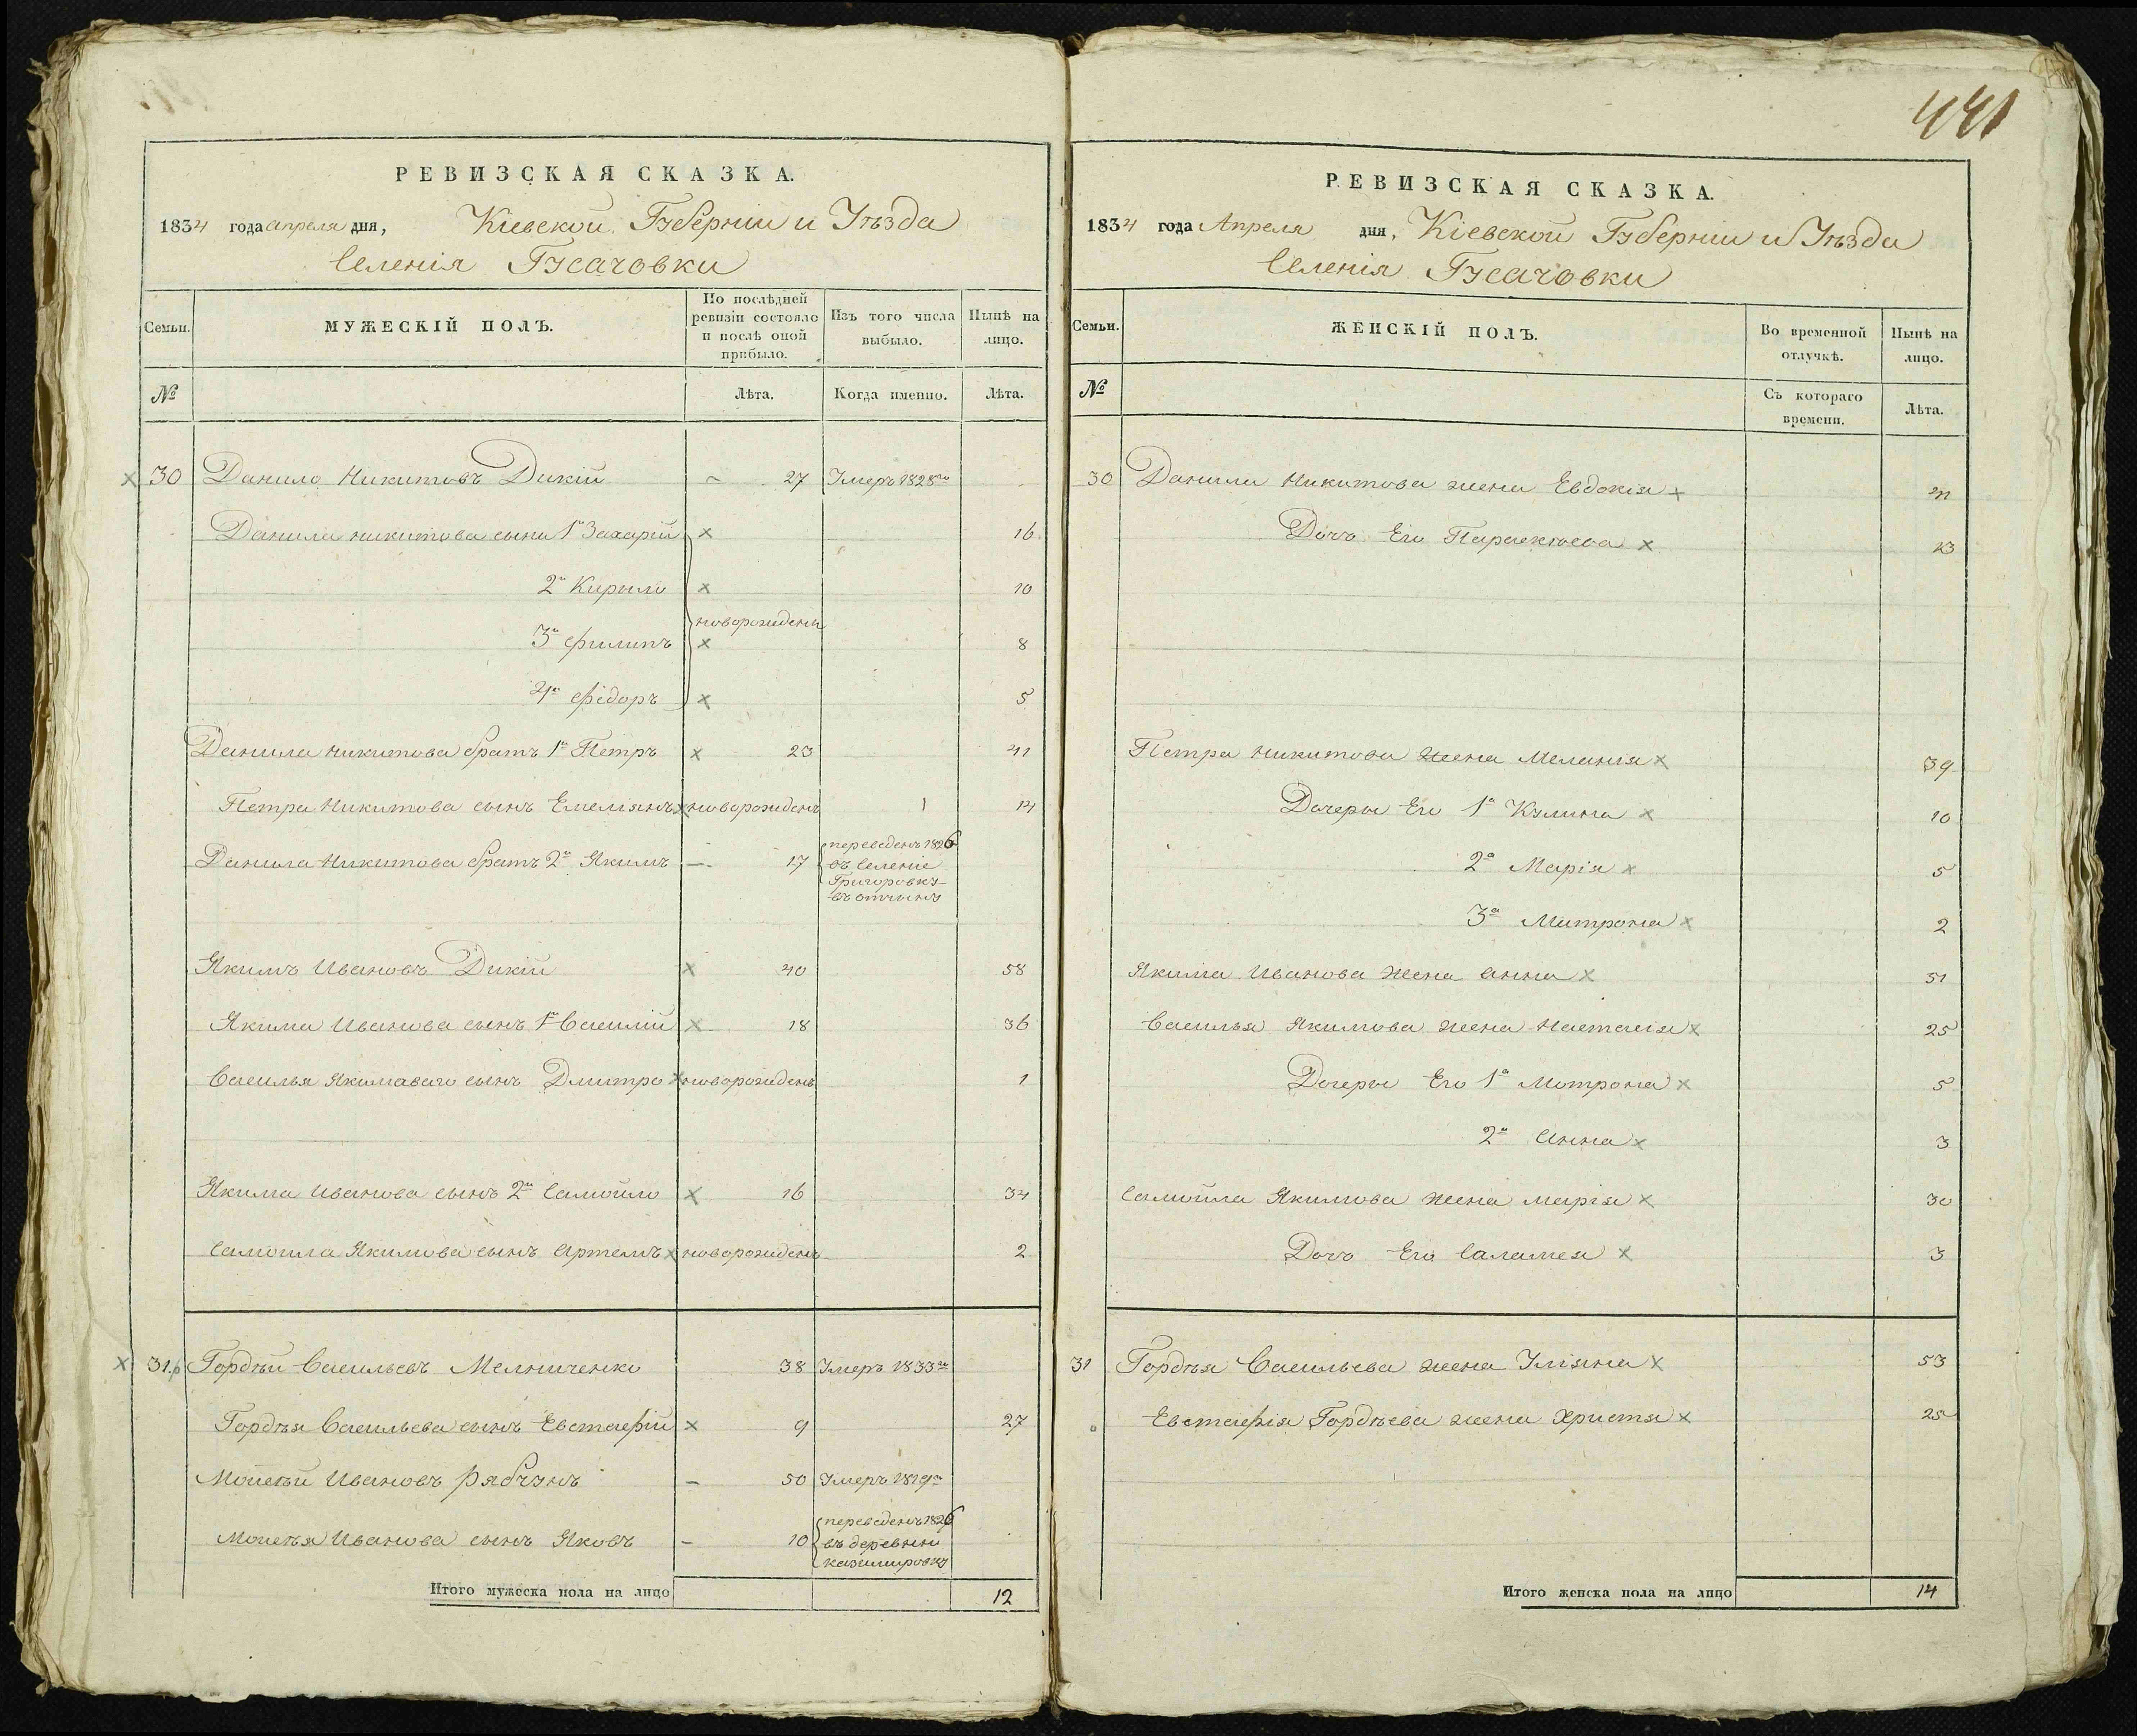 441
РЕВИЗСКАЯ СКАЗКА.
1834 года апреля дня, Кіевской Губерніи и Уѣзда
Селенія Гусачовки
Семьи.
МУЖЕСКІЙ ПОЛЪ.
По послѣдней ревизіи состояло и послѣ оной прибыло.
Изъ того числа выбыло.
Нынѣ на лицо.
№
Лѣта.
Когда именно.
Лѣта.
30 Данило Никитовъ Дикій 27 Умеръ 1828го
Данила Никитова сына 1й Захарій 16
2й Кирило 10
новорожденн
3й Филипъ 8
4й Фідоръ 5
Данила Никитова братъ 1й Петръ 23 41
Петра Никитова сынъ Емелянъ новорожденъ 14
Данила Никитова братъ 2й Якимъ 17 переведенъ 1826
въ Селеніе
Григоровку
въ отчину
Якимъ Ивановъ Дикій 40 58
Якима Иванова сынъ 1й Василій 18 36
Василья Якимаваго сынъ Дмитро новорожденъ 1
Якима Иванова сынъ 2й Самойло 16 34
Самоила Якимова сынъ Артемъ новорожденъ 2
31 Гордѣй Васильевъ Мельниченко 38 Умеръ 1833го
Гордѣя Васильева сынъ Евстафій 9 27
Мойсѣй Ивановъ Рябчунъ 50 Умеръ 1819го
Моисѣя Иванова сынъ Яковъ 10 переведенъ 1826
въ деревню
казимировку
Итого мужеска пола на лицо 12
РЕВИЗСКАЯ СКАЗКА.
1834 года Апреля дня, Кіевской Губерніи и Уѣзда
Селенія Гусачовки
Семьи.
ЖЕНСКІЙ ПОЛЪ.
Во временной отлучкѣ.
Нынѣ на лицо.
№
Съ котораго времени.
Лѣта.
30 Данила Никитова жена Евдокія
Дочь Его Параскювва 13
Петра Никитова жена Меланія 39
Дочеры Его 1а Кулина 10
2а Марія 5
3а Митрона 2
Якима Иванова жена Анна 51
Василья Якимова жена Настасія 25
Дочеры Его 1а Мотрона 5
2а Анна 3
Самойла Якимова жена Марія 30
Дочь Его Саламея 3
31 Гордѣя Васильева жена Уліяна 53
Евстафія Гордѣева жена Христя 25
Итого женска пола на лицо 14